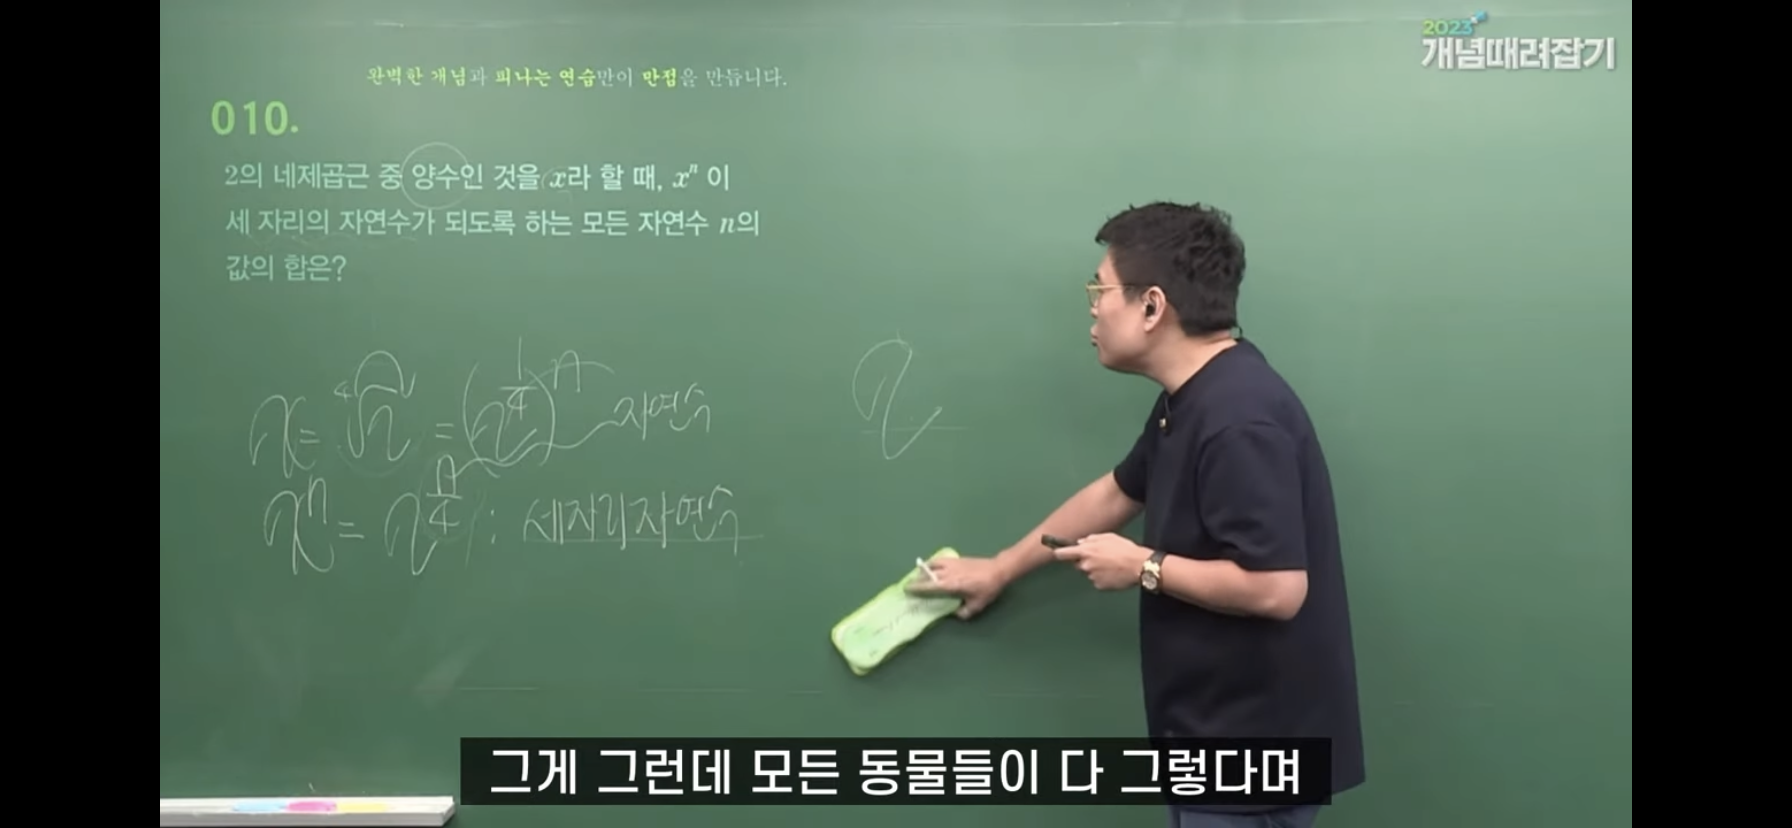 2023
개념때려잡기
완벽한 개념과 피나는 연습만이 만점을 만듭니다.
010.
2의 네제곱근 중 양수인 것을 x라 할 때, xⁿ 이
세 자리의 자연수가 되도록 하는 모든 자연수 n의
값의 합은?
x = ⁴√2 = (2^(1/4))^n 자연수
xⁿ = 2^(n/4) : 세자리자연수
2
그게 그런데 모든 동물들이 다 그렇다며